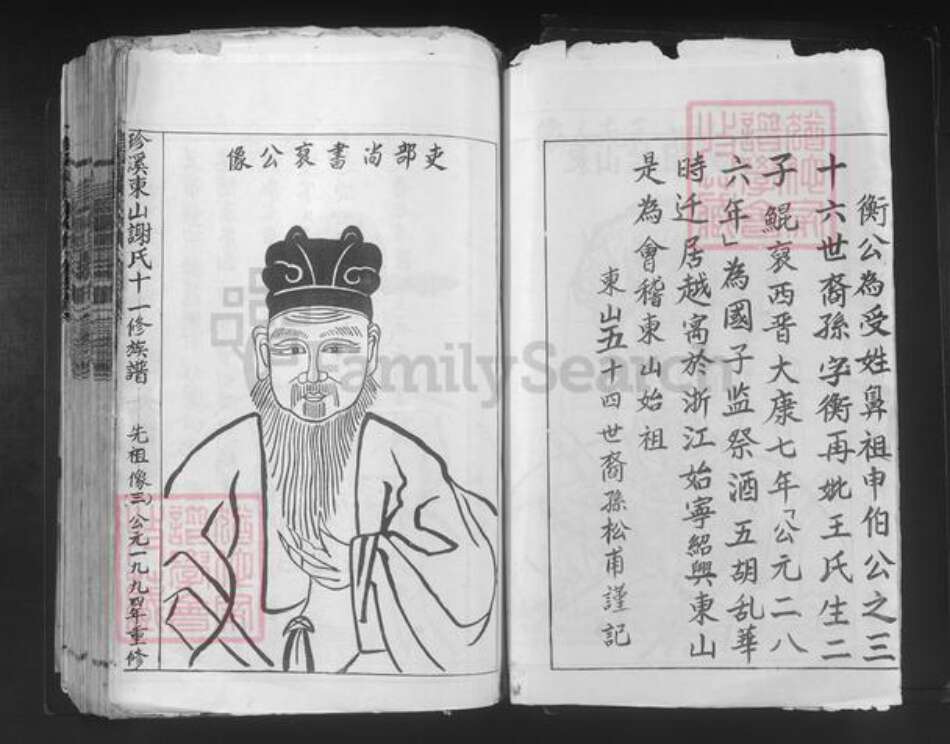 衡公為受姓鼻祖申伯公之三
十六世裔孫字衡再妣王氏生二
子鯤裒西晋大康七年「公元二八
六年」為國子监祭酒五胡乱華
時迁居越寓於浙江始寧紹興東山
是為會稽東山始祖
東山五十四世裔孫松甫謹記
吏部尚書裒公像
珍溪東山謝氏十一修族譜 先祖像(三) 公元一九九四年重修
FamilySearch